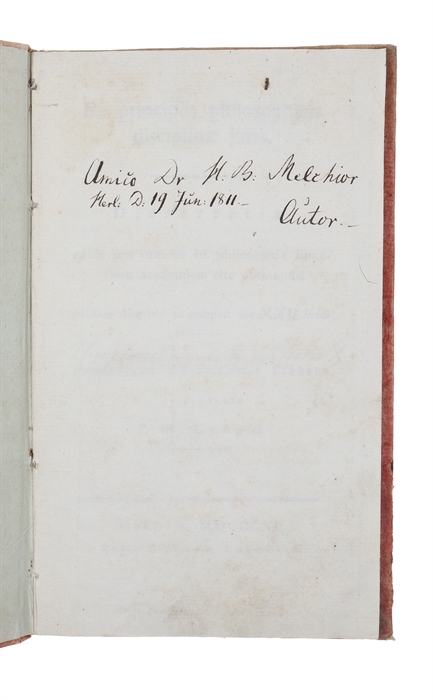 Amico Dr H. B: Melchior
Herl: D: 19 Jun: 1811.-
Autor.-